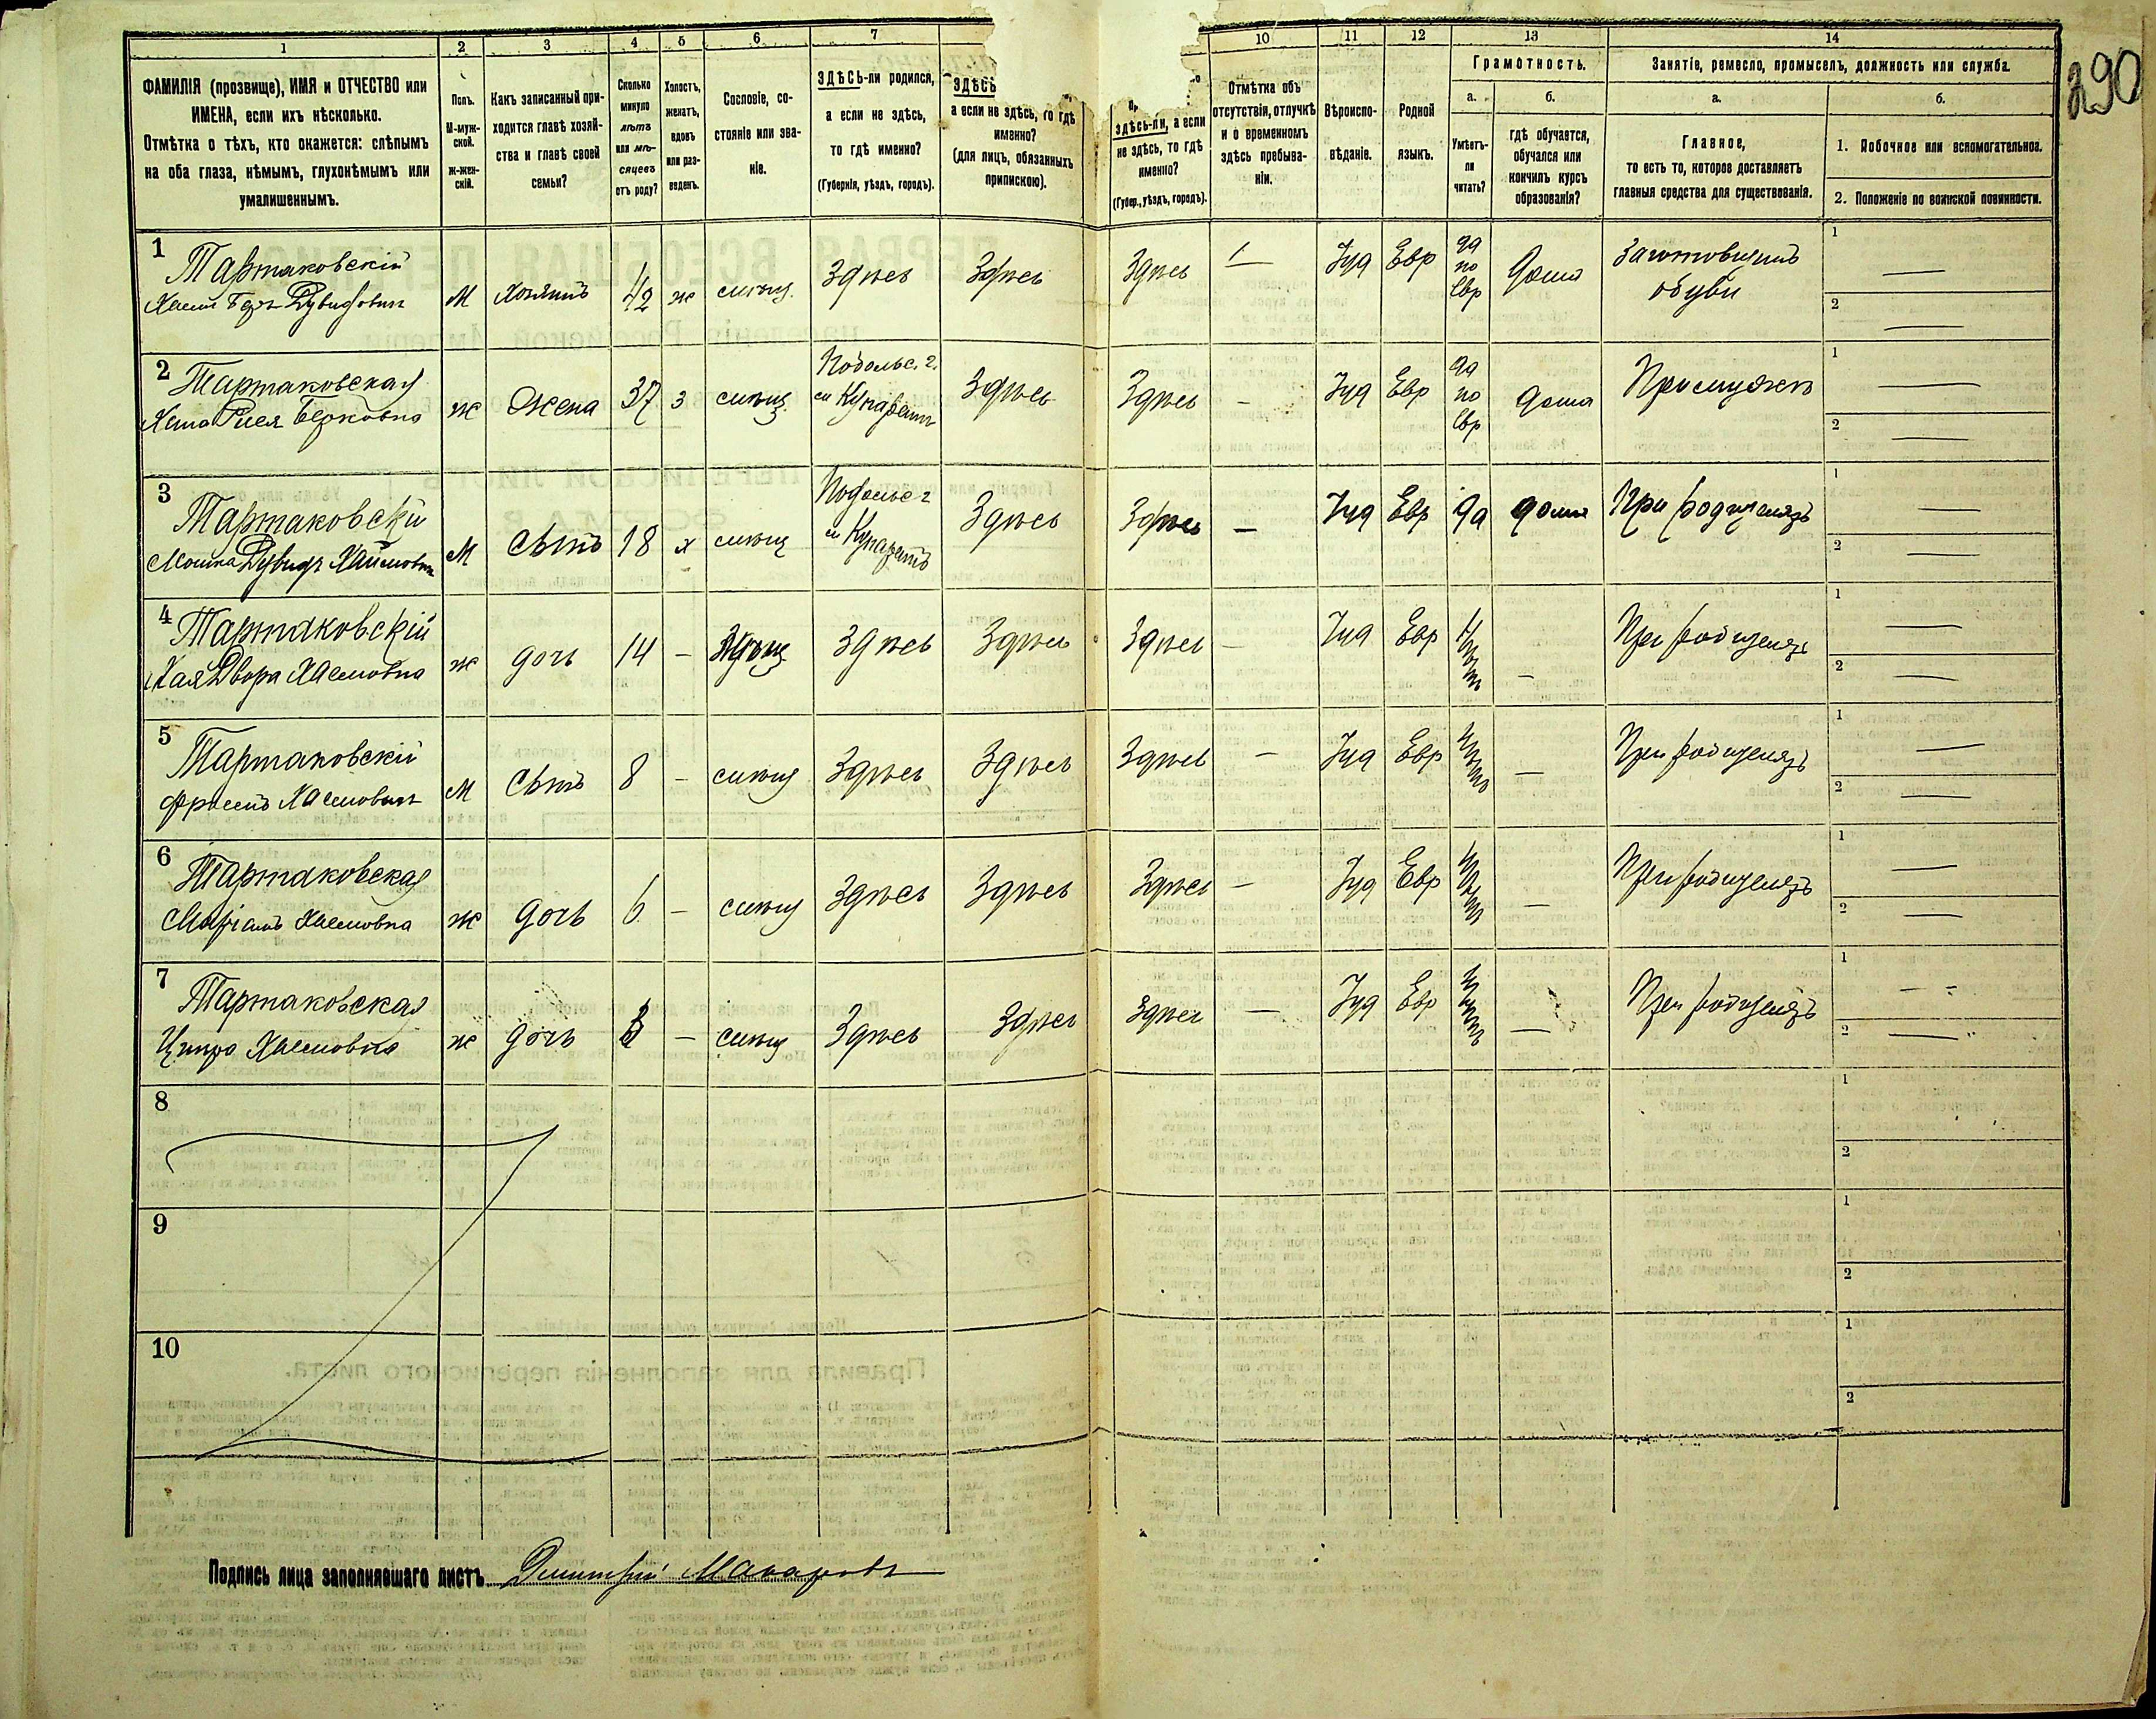 290
1 2 3 4 5 6 7 10 11 12 13 14
ФАМИЛІЯ (прозвище), ИМЯ и ОТЧЕСТВО или
ИМЕНА, если ихъ нѣсколько.
Отмѣтка о тѣхъ, кто окажется: слѣпымъ
на оба глаза, нѣмымъ, глухонѣмымъ или
умалишеннымъ.
Полъ.
М-муж-
ской.
ж-жен-
скій.
Какъ записанный при-
ходится главѣ хозяй-
ства и главѣ своей
семьи?
Сколько
минуло
лѣтъ
или мѣ-
сяцевъ
отъ роду?
Холостъ,
женатъ,
вдовъ
или раз-
веденъ.
Сословіе, со-
стояніе или зва-
ніе.
ЗДѢСЬ-ли родился,
а если не здѣсь,
то гдѣ именно?
(Губернія, уѣздъ, городъ).
ЗДѢСЬ
а если не здѣсь, то гдѣ
именно?
(для лицъ, обязанныхъ
припискою).
здѣсь-ли, а если
не здѣсь, то гдѣ
именно?
(Губер., уѣздъ, городъ).
Отмѣтка объ
отсутствіи, отлучкѣ
и о временномъ
здѣсь пребыва-
ніи.
Вѣроиспо-
вѣданіе.
Родной
языкъ.
Грамотность.
а.
Умѣетъ-
ли
читать?
б.
гдѣ обучается,
обучался или
кончилъ курсъ
образованія?
Занятіе, ремесло, промыселъ, должность или служба.
а.
Главное,
то есть то, которое доставляетъ
главныя средства для существованія.
б.
1. Побочное или вспомогательное.
2. Положеніе по воинской повинности.
1 Тартаковскій
Хаимъ Беръ Дувидовичъ М Хозяинъ 42 ж Здѣсь Здѣсь Здѣсь — Іуд Евр да по Евр дома Заготовщикъ обуви 1 — 2 —
2 Тартаковская
Берковна ж Жена 37 з Подольс. г. Здѣсь Здѣсь — Іуд Евр да по Евр дома При мужѣ 1 — 2 —
3 Тартаковскій
Мошка Дувидъ Хаимовичъ М Сынъ 18 х Подольс г Здѣсь Здѣсь — Іуд Евр да дома При родителяхъ 1 — 2 —
4 Тартаковскій
Хая Двора Хаимовна ж дочь 14 — Здѣсь Здѣсь Здѣсь — Іуд Евр Нѣтъ — При родителяхъ 1 — 2 —
5 Тартаковскій
Фроимъ Хаимовичъ М Сынъ 8 — Здѣсь Здѣсь Здѣсь — Іуд Евр Нѣтъ — При родителяхъ 1 — 2 —
6 Тартаковская
Маріамъ Хаимовна ж дочь 6 — Здѣсь Здѣсь Здѣсь — Іуд Евр Нѣтъ — При родителяхъ 1 — 2 —
7 Тартаковская
Хаимовна ж дочь 3 — Здѣсь Здѣсь Здѣсь — Іуд Евр Нѣтъ — При родителяхъ 1 — 2 —
8 1 2
9 1 2
10 1 2
Подпись лица заполнявшаго листъ Дмитрій Макаровъ